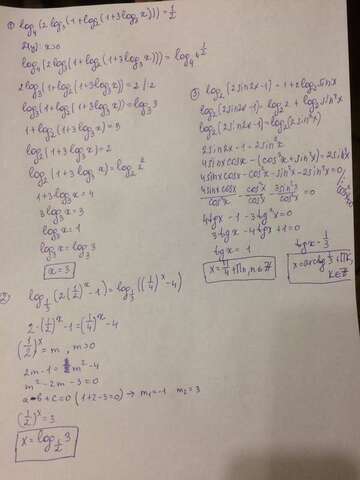 ① log₄(2log₃(1+log₂(1+3log₃x)))=1/2
x>0
log₄(2log₃(1+log₂(1+3log₃x)))=log₄4^(1/2)
2log₃(1+log₂(1+3log₃x))=2 /:2
log₃(1+log₂(1+3log₃x))=log₃3
1+log₂(1+3log₃x)=3
log₂(1+3log₃x)=2
log₂(1+3log₃x)=log₂2²
1+3log₃x=4
3log₃x=3
log₃x=1
log₃x=log₃3
x=3
② log_(1/3)(2(1/2)^x-1)=log_(1/3)((1/4)^x-4)
2·(1/2)^x-1=(1/4)^x-4
(1/2)^x=m, m>0
2m-1=m²-4
m²-2m-3=0
a-b+c=0 (1+2-3=0) → m₁=-1 m₂=3
(1/2)^x=3
x=log_(1/2)3
③ log₂(2sin2x-1)=1+2log₂sinx
log₂(2sin2x-1)=log₂2+log₂sin²x
log₂(2sin2x-1)=log₂(2sin²x)
2sin2x-1=2sin²x
4sinxcosx-(cos²x+sin²x)=2sin²x
4sinxcosx-cos²x-sin²x-2sin²x=0 /:
4sinxcosx/cos²x-cos²x/cos²x-3sin²x/cos²x=0
4tgx-1-3tg²x=0
3tg²x-4tgx+1=0
tgx=1 tgx=1/3
x=π/4+πn, n∈Z x=arctg1/3+πk, k∈Z